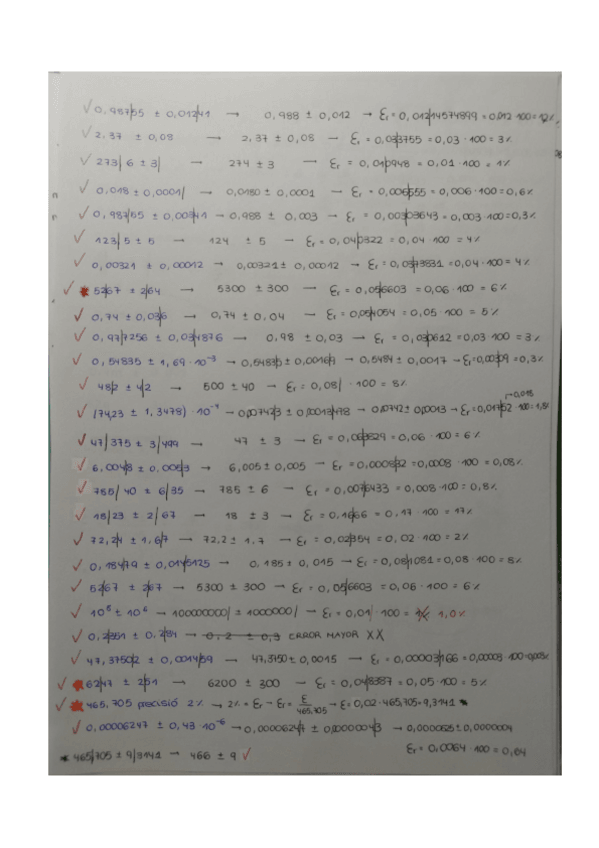 ✓ 0,98755 ± 0,01241 → 0,988 ± 0,012 → Ɛr = 0,01214574899 = 0.012 · 100 = 12%
✓ 2,37 ± 0,08 → 2,37 ± 0,08 → Ɛr = 0,033755 = 0,03 · 100 = 3%
✓ 273|6 ± 3| → 274 ± 3 → Ɛr = 0,010948 = 0,01 · 100 = 1%
✓ 0,018 ± 0,0001| → 0,0180 ± 0,0001 → Ɛr = 0,006555 = 0,006 · 100 = 0,6%
✓ 0,98755 ± 0,00341 → 0,988 ± 0,003 → Ɛr = 0,00303643 = 0,003 · 100 = 0,3%
✓ 123|5 ± 5 → 124 ± 5 → Ɛr = 0,040322 = 0,04 · 100 = 4%
✓ 0,00321 ± 0,00012 → 0,00321 ± 0,00012 → Ɛr = 0,0373831 = 0,04 · 100 = 4%
✓ * 5267 ± 264 → 5300 ± 300 → Ɛr = 0,056603 = 0,06 · 100 = 6%
✓ 0,74 ± 0,036 → 0,74 ± 0,04 → Ɛr = 0,054054 = 0,05 · 100 = 5%
✓ 0,977256 ± 0,034876 → 0,98 ± 0,03 → Ɛr = 0,030612 = 0,03 · 100 = 3%
✓ 0,54835 ± 1,69 · 10⁻³ → 0,54835 ± 0,00169 → 0,5484 ± 0,0017 → Ɛr = 0,00309 = 0,3%
✓ 482 ± 42 → 500 ± 40 → Ɛr = 0,08| · 100 = 8%
✓ (74,23 ± 1,3478) · 10⁻⁴ → 0,007423 ± 0,00013478 → 0,00742 ± 0,00013 → Ɛr = 0,01752 · 100 = 1,8% → 0,018
✓ 47|375 ± 3|499 → 47 ± 3 → Ɛr = 0,063829 = 0,06 · 100 = 6%
✓ 6,0048 ± 0,0053 → 6,005 ± 0,005 → Ɛr = 0,000832 = 0,0008 · 100 = 0,08%
✓ 785|40 ± 6|35 → 785 ± 6 → Ɛr = 0,0076433 = 0,008 · 100 = 0,8%
✓ 18|23 ± 2|67 → 18 ± 3 → Ɛr = 0,1666 = 0,17 · 100 = 17%
✓ 72,24 ± 1,67 → 72,2 ± 1,7 → Ɛr = 0,02354 = 0,02 · 100 = 2%
✓ 0,18479 ± 0,0145125 → 0,185 ± 0,015 → Ɛr = 0,081081 = 0,08 · 100 = 8%
✓ 5267 ± 267 → 5300 ± 300 → Ɛr = 0,056603 = 0,06 · 100 = 6%
✓ 10⁸ ± 10⁶ → 100000000| ± 1000000| → Ɛr = 0,01| · 100 = 1% 1,0%
✓ 0,2351 ± 0,291 → 0,2 ± 0,3 ERROR MAYOR XX
✓ 47,37502 ± 0,001459 → 47,3750 ± 0,0015 → Ɛr = 0,00003166 = 0,00003 · 100 = 0,003%
✓ * 6247 ± 251 → 6200 ± 300 → Ɛr = 0,048387 = 0,05 · 100 = 5%
✓ * 465,705 precisió 2% → 2% = Ɛr → Ɛr = Ɛ/465,705 → Ɛ = 0,02 · 465,705 = 9,3141 *
✓ 0,00006247 ± 0,43 · 10⁻⁶ → 0,00006247 ± 0,00000043 → 0,0000625 ± 0,0000004
Ɛr = 0,0064 · 100 = 0,64
* 465|705 ± 9|3141 → 466 ± 9 ✓